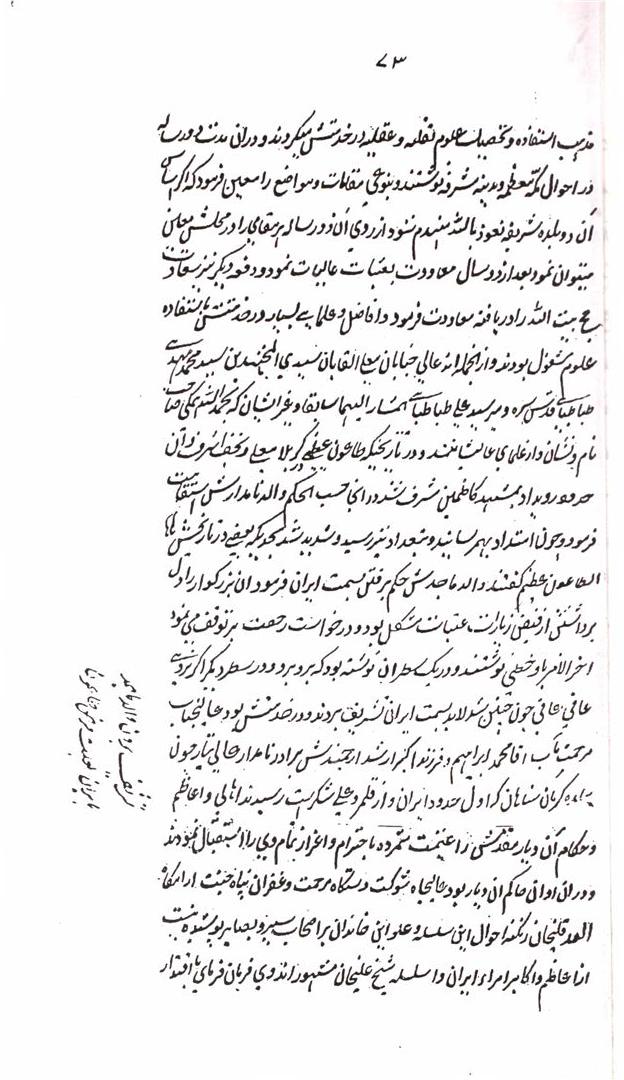 ۷۳
مذهب استفاده و تحصیلات علوم نقلیه و عقلیه در خدمتش میکردند و در ان مدت دو رساله
در احوال مکه معظمه و مدینه مشرفه نوشتند و بنوعی مقامات و مواضع را معین فرمود که اگر اساس
آن دو بلده شریفه نعوذ بالله منهدم شود از روی آن دو رساله هر مقامی را در محلش معین
میتوان نمود بعد از دو سال معاودت بعتبات عالیات نمود و دفعه دیگر نیز سعادت
حج بیت الله را دریافته معاودت فرمود و افاضل و علمای بسیار در خدمتش باستفاده
علوم مشغول بودند و از انجمله اند عالی جنابان معلی القابان سیدی المجتهدین سید محمد مهدی
طباطبائی قدس سره و میر سید علی طباطبائی المشار الیهما سابقا و غیر ایشان که بحمد الله همگی صاحب
نام و نشان و از علمای عالیشانند و در تاریخیکه طاعون عظیمی در کربلا معلی و نجف اشرف و آن
حدود رویداد بمشهد کاظمین مشرف شدند در انجا حسب الحکم والد نامدارش استقامت
فرمود و چون امتداد بهمرسانید و ببغداد نیز رسید و شدید شد بحدیکه بعضی در تاریخش با
الطاعون عظیم گفتند والد ماجدش حکم برفتن بسمت ایران فرمود ان بزرگوار را دل
برداشتن از فیض زیارات عتبات مشکل بود و درخواست رخصت بر توقف می نمود
اخر الامر باو خطی نوشتند و در یک سطر ان نوشته بود که برو برو و در سطر دیگر اگر نروی
عاقی عاقی چون چنین شد لابد بسمت ایران تشریف بردند و در خدمتش بود عالیجناب
مرحمت مآب اقا محمد ابراهیم و فرزند اکبر ارشد ارجمندش برادر نامدار عالی تبار چون
ببلده کرمانشاهان که اول حدود ایران و از قلمرو علی شکر است رسیدند اهالی و اعاظم
و حکام آن دیار مقدمش را غنیمت شمرده با احترام و اعزاز تمام وی را استقبال نمودند
و در ان اوان حاکم ان دیار بود عالیجاه شوکت دستگاه مرحمت و غفران پناه جنت ارامگاه
الله قلیخان زنگنه احوال این سلسله و علو این خاندان بر اصحاب سیر و بصایر پوشیده نیست
از اعاظم و اکابر امراء ایران و از سلسله شیخ علیخان مشهور اند وی فرمان فرمای با اقتدار
تشریف بردن والد ماجد
بایران بعلت عرض طاعون